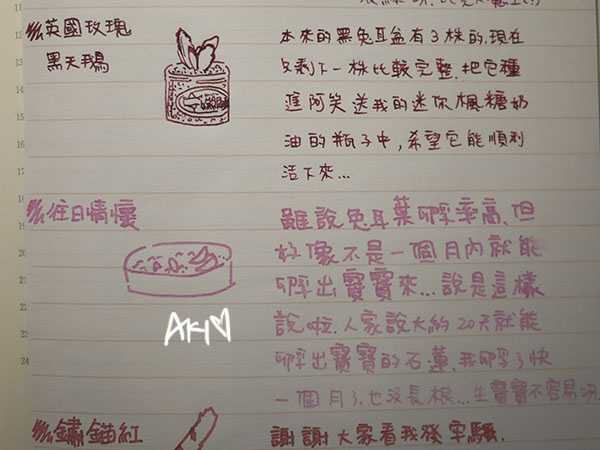 英國玫瑰
黑天鵝
本來的黑兔耳盆有3株的,現在
只剩下一株比較完整,把它種
進阿笑送我的迷你楓糖奶
油的瓶子中,希望它能順利
活下來...
往日情懷
雖說兔耳葉孵率高,但
好像不是一個月內就能
孵出寶寶來...說是這樣
說啦,人家說大約20天就能
孵出寶寶的石蓮,我孵了快
一個月了,也沒長根...生寶寶不容易呀
AKI
鏽錨紅
謝謝大家看我發牢騷.
11
12
13
14
15
16
17
18
19
20
21
22
23
24